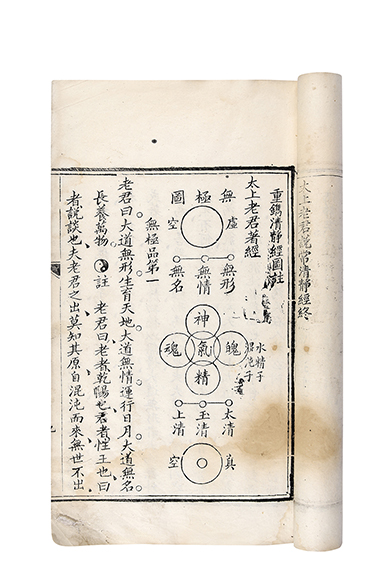 太上老君說常清靜經終
重鐫清靜經圖註
太上老君著經
水精子
混沌子
無極圖
虛空
無形
無情
無名
神
魄氣魂
精
太清
玉清
上清
真空
無極品第一
老君曰大道無形生育天地大道無情運行日月大道無名
長養萬物 註 老君曰老者乾陽也君者性王也曰
者說談也夫老君之出莫知其原自混沌而來無世不出